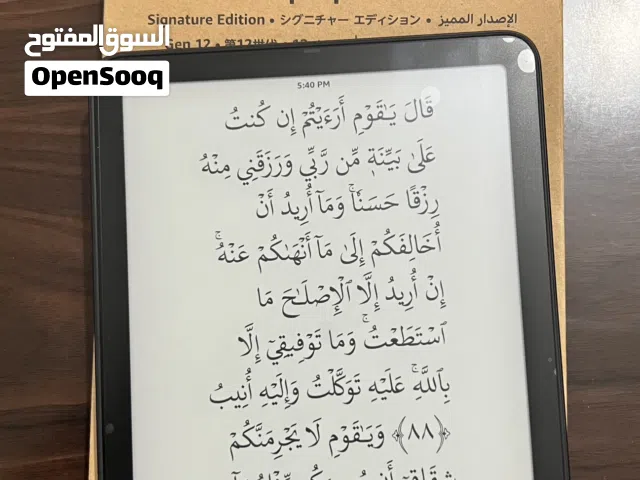 Signature Edition • シグニチャー エディション • الإصدار المميز
Gen 12 • 第12世代
السوق المفتوح
OpenSooq
5:40 PM
قَالَ يَٰقَوْمِ أَرَءَيْتُمْ إِن كُنتُ
عَلَىٰ بَيِّنَةٍ مِّن رَّبِّي وَرَزَقَنِي مِنْهُ
رِزْقًا حَسَنًاۚ وَمَآ أُرِيدُ أَنْ
أُخَالِفَكُمْ إِلَىٰ مَآ أَنْهَىٰكُمْ عَنْهُۚ
إِنْ أُرِيدُ إِلَّا ٱلْإِصْلَٰحَ مَا
ٱسْتَطَعْتُۚ وَمَا تَوْفِيقِيٓ إِلَّا
بِٱللَّهِۚ عَلَيْهِ تَوَكَّلْتُ وَإِلَيْهِ أُنِيبُ
﴿٨٨﴾ وَيَٰقَوْمِ لَا يَجْرِمَنَّكُمْ